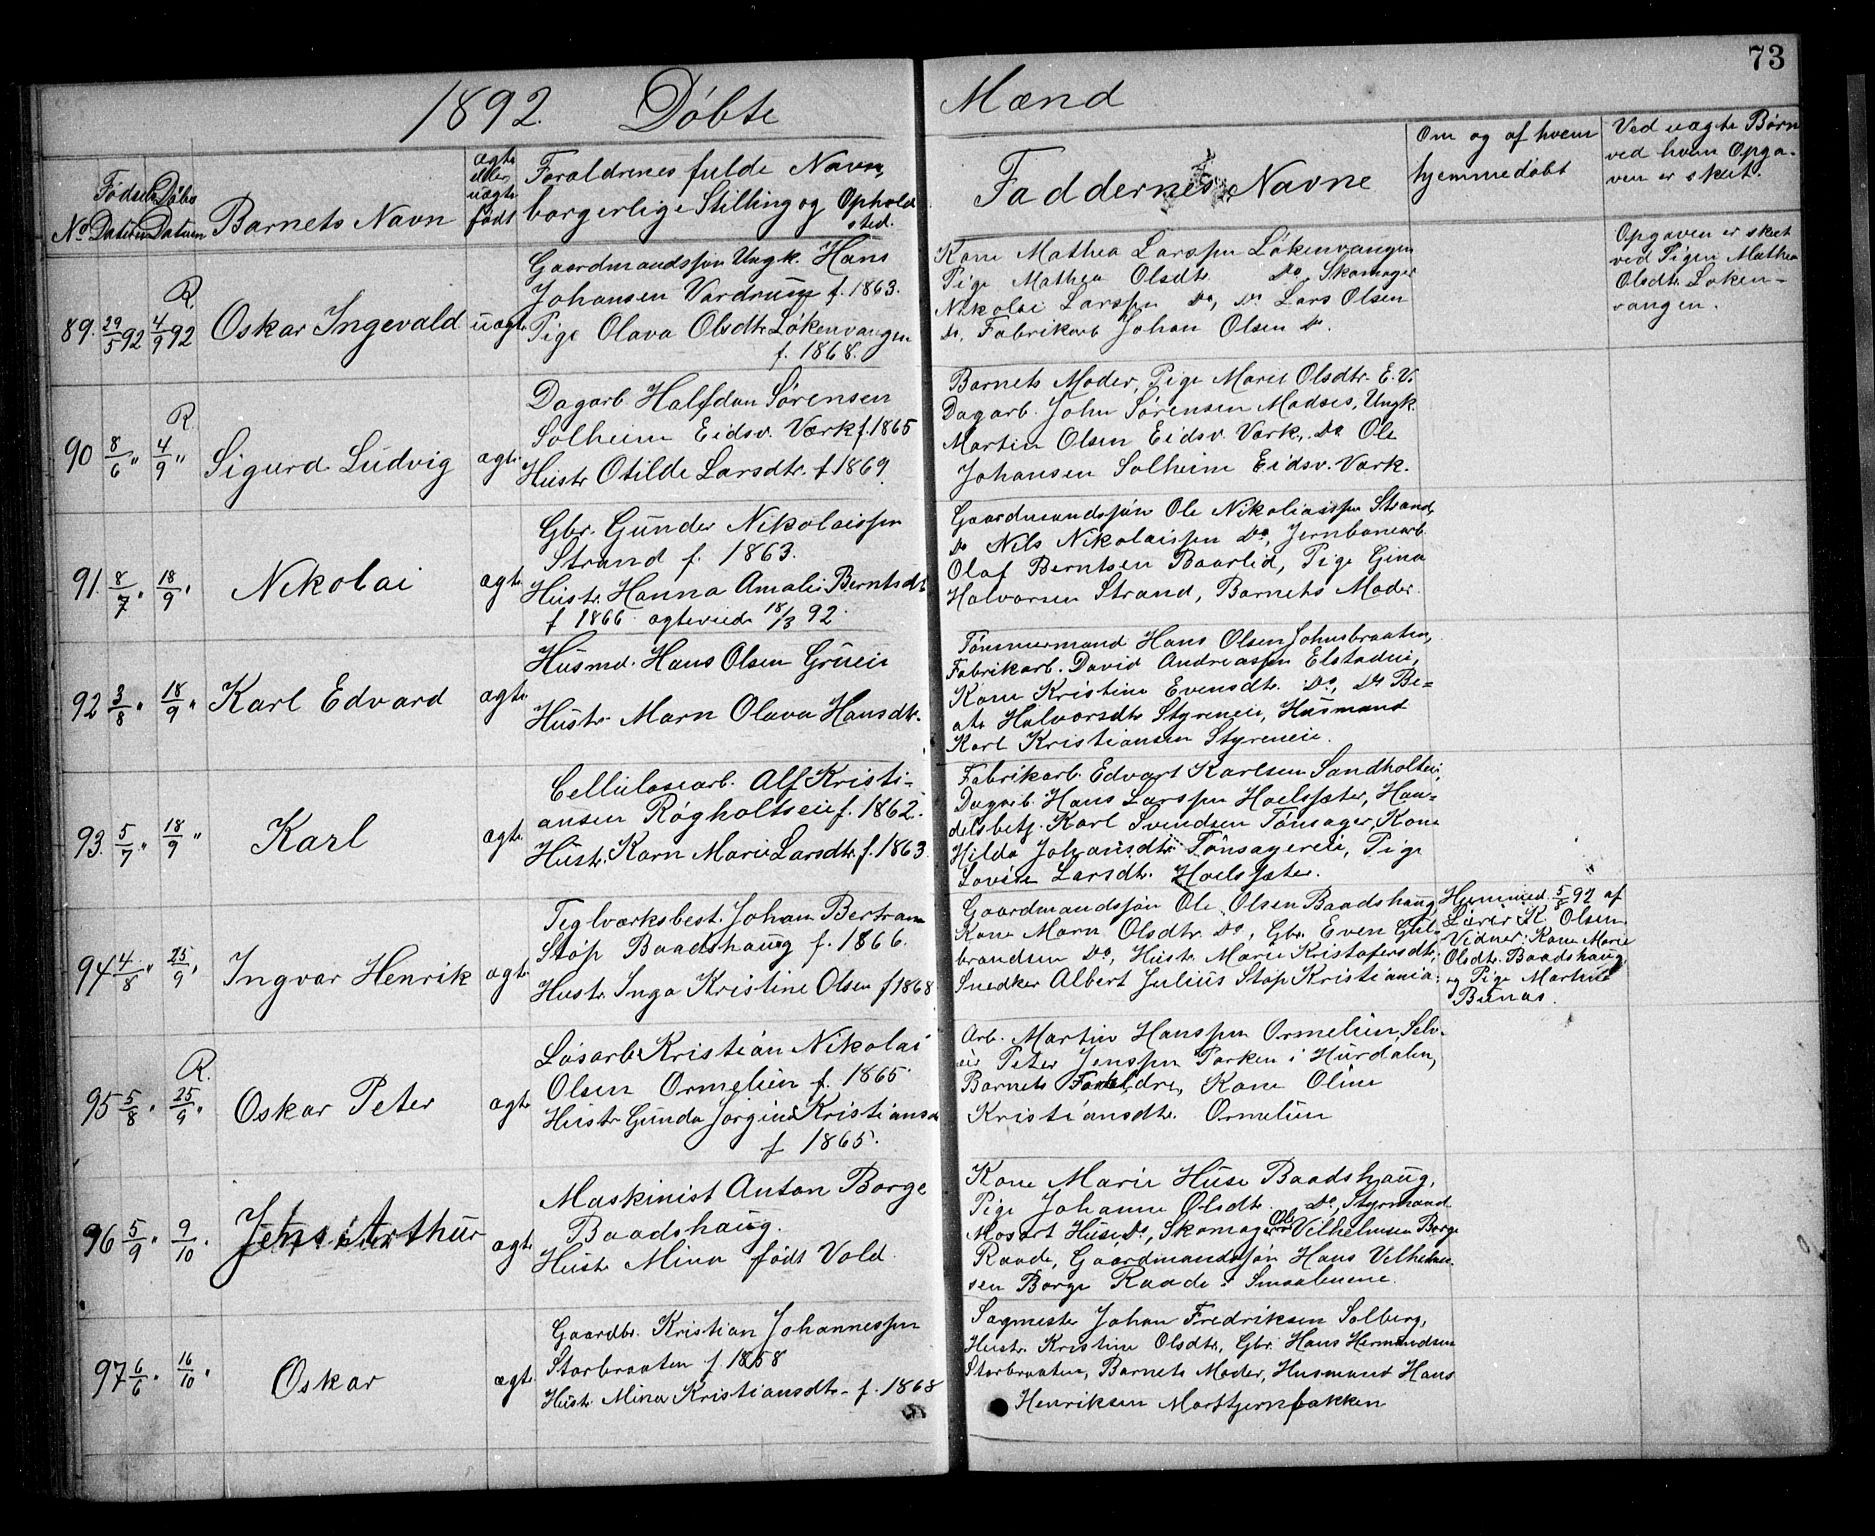 73
1892. Døbte Mænd
No
Fødsels Datum
Døbs Datum
Barnets Navn
ægte eller uægte født
Forældrenes fulde Navn,
borgerlige Stilling og Opholdsted.
Faddernes Navne
Om og af hvem
hjemmedøbt
Ved uægte Børn
ved hvem Opga-
ven er skeet.
89. 29/5 92 R. 4/9 92 Oskar Ingevald uægte
Gaardmandssøn Ungk. Hans
Johansen Vardrum f. 1863.
Pige Olava Olsdtr. Løkenvangen
f. 1868.
Kone Mathea Larssen Løkenvangen
Pige Mathea Olsdtr. Do, Skomager
Nikolai Larssen Do, Do Lars Olsen
Do, Fabrikarb. Johan Olsen Do.
Opgaven er skeet
ved Pigen Mathea
Olsdtr. Løken-
vangen.
90 8/6 " R. 4/9 " Sigurd Ludvig ægte
Dagarb. Halfdan Sørensen
Solheim Eidsv. Værk f. 1865
Hustr. Otilde Larsdtr. f. 1869.
Barnets Moder, Pige Maret Olsdtr. E. V.
Dagarb. John Sørensen Modses, Ungk.
Martin Olsen Eidsv. Værk, Do Ole
Johansen Solheim Eidsv. Værk.
91. 8/7 " 18/9 " Nikolai ægte
Gbr. Gunder Nikolaissen
Strand f. 1863.
Hustr. Hanna Amalie Berntsdt.
f. 1866 ægteviede 18/3 92.
Gaardmandssøn Ole Nikolaissen Strand,
Do Nils Nikolaissen Do, Jernbanearb.
Olaf Berntsen Baarlid, Pige Gina
Halvorsen Strand, Barnets Moder.
92 3/8 " 18/9 " Karl Edvard ægte
Husmd. Hans Olsen Grueie
Hustr. Marn Olava Hansdtr.
Tømmermand Hans Olsen Johnsbraaten,
Fabrikarb. David Andreassen Elstadeie,
Kone Kristine Evensdtr. Do, Do Be-
ate Halvorsdtr Styreneie, Husmand
Karl Kristiansen Styreneie.
93. 5/7 " 18/9 " Karl ægte
Cellulosearb. Alf Kristi-
ansen Røgholtseie f. 1862.
Hustr. Karn Marie Larsdtr. f. 1863.
Fabrikarb. Edvart Karlsen Sandholteie,
Dagarb. Hans Larssen Hoelssæter, Han-
delsbetj. Karl Svendsen Tønsager, Kone
Hilda Johansdtr Tønsagereie, Pige
Lovise Larsdtr. Hoelssæter.
94 4/8 " 25/9 " Ingvar Henrik ægte
Teglværksbest. Johan Bertram
Støp Baadshaug f. 1866.
Hustr. Inga Kristine Olsen f 1868
Gaardmandssøn Ole Olsen Baadshaug
Kone Marn Olsdtr. Do, Gbr. Even Gul-
brandsen Do, Hustr. Marie Kristofersdtr,
Snedker Albert Julius Støp Kristiania.
Hjemmed. 5/8 92 af
Lærer K. Olsen.
Vidner: Kone Marie
Olsdtr. Baadshaug
og Pige Martine
Bunæs.
95 5/8 " R. 25/9 " Oskar Peter ægte
Løsarb. Kristian Nikolai
Olsen Ormelien f. 1865.
Hustr. Gunda Jørgine Kristiansdt
f 1865.
Arb. Martin Hanssen Ormelien, Selv-
eier Peter Jenssen Parken i Hurdalen,
Barnets Forældre, Kone Oline
Kristiansdtr. Ormelien
96 5/9 " 9/10 " Jens Arthur ægte
Maskinist Anton Borge
Baadshaug.
Hustr. Mina født Vold.
Kone Marie Huse Baadshaug,
Pige Johanne Olsdtr. Do, Styrmand
Mosart Huse Do, Skomager Ole Vilhelmsen Borge
Raade, Gaardmandssøn Hans Vilhelm-
sen Borge Raade i Smaalenene.
97 6/6 " 16/10 " Oskar ægte
Gaardbr. Kristian Johannessen
Storbraaten f 1858
Hustr. Mina Kristiansdtr. f. 1868
Sagmester Johan Fredriksen Solberg,
Hustr. Kristine Olsdtr., Gbr. Hans Hermundsen
Storbraaten, Barnets Moder, Husmand Hans
Henriksen Mortjernbakken